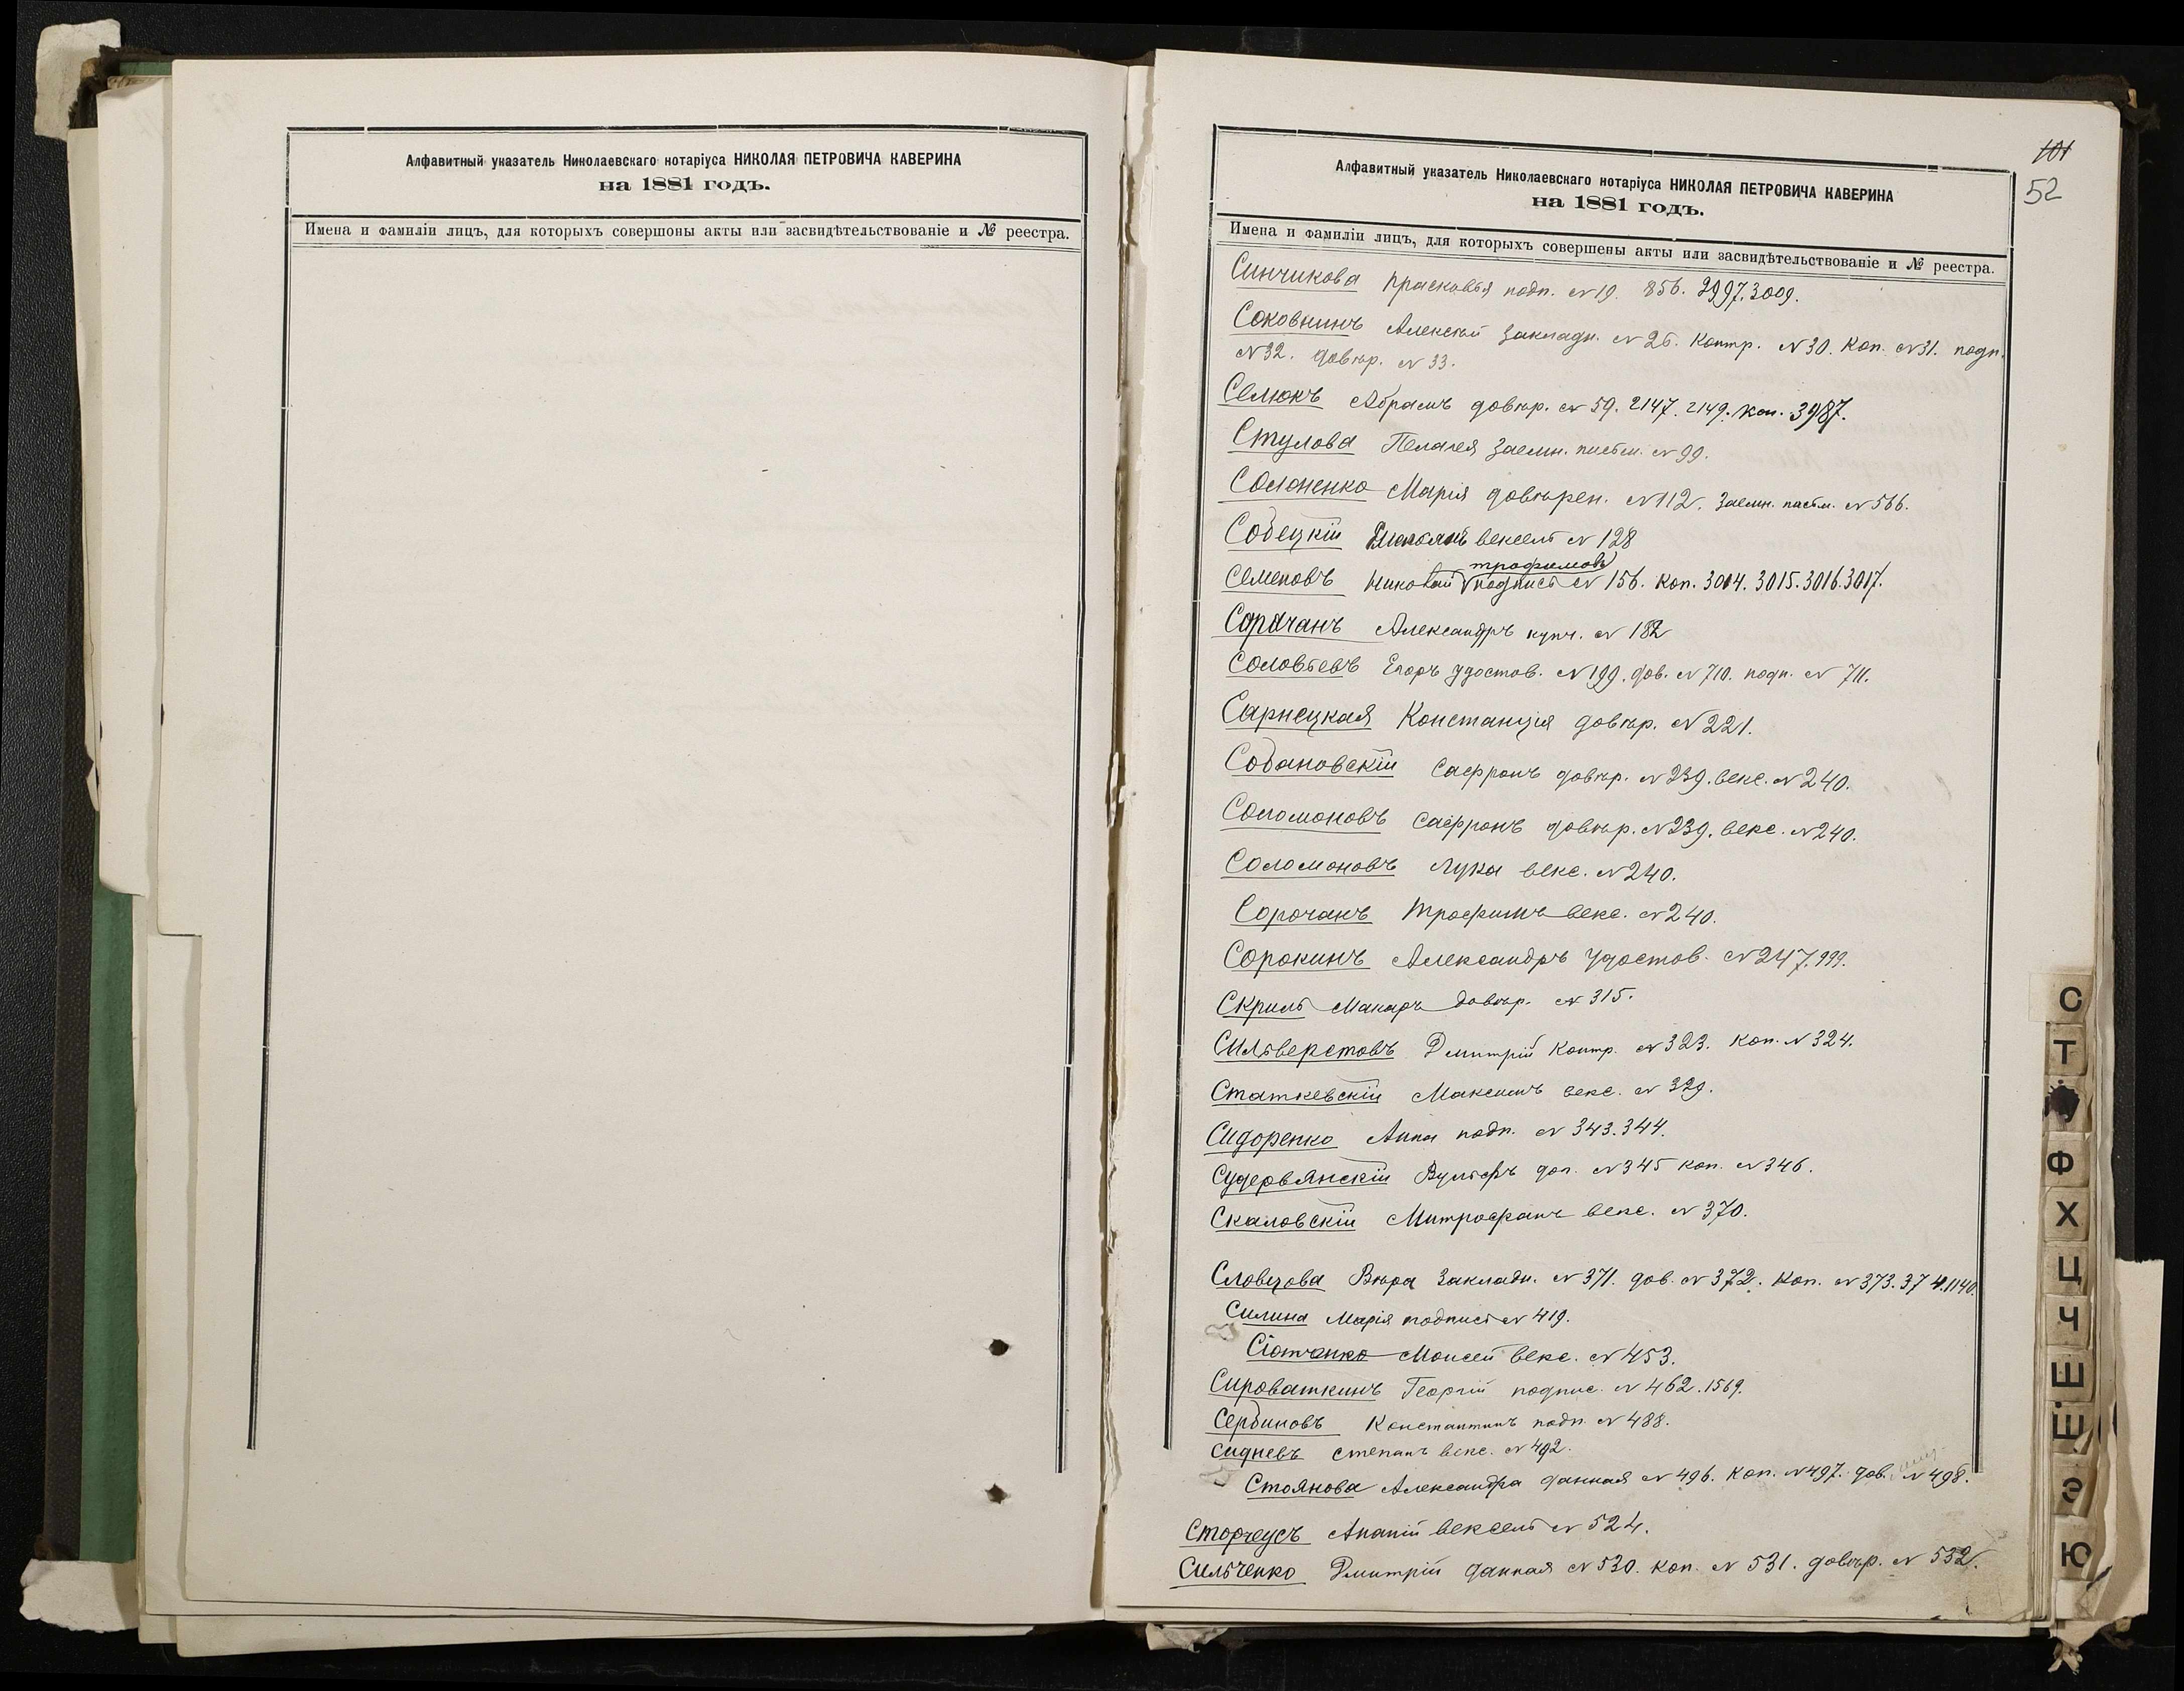 Алфавитный указатель Николаевскаго нотаріуса НИКОЛАЯ ПЕТРОВИЧА КАВЕРИНА
на 1881 годъ.
Имена и фамиліи лицъ, для которыхъ совершоны акты или засвидѣтельствованіе и № реестра.
101
52
Алфавитный указатель Николаевскаго нотаріуса НИКОЛАЯ ПЕТРОВИЧА КАВЕРИНА
на 1881 годъ.
Имена и фамиліи лицъ, для которыхъ совершены акты или засвидѣтельствованіе и № реестра.
Синчикова Прасковья подп. № 19. 856. 2997. 3009.
Соковнинъ Алексѣй Закладн. № 26. Контр. № 30. Коп. № 31. подп.
№ 32. довѣр. № 33.
Селюкъ Абрамъ довѣр. № 59. 2147. 2149. коп. 3987.
Стулова Пелагея Заемн. письм. № 99.
Солоненко Марія довѣрен. № 112. Заемн. письм. № 566.
Собецкій вексель № 128
трофимовъ
Семеновъ Николай подпись № 156. Коп. 3014. 3015. 3016. 3017.
Сорочанъ Александръ купч. № 182
Соловьевъ Егоръ удостов. № 199. дов. № 710. подп. № 711.
Сарнецкая Констанція довѣр. № 221.
Собановскій Сафронъ довѣр. № 239. векс. № 240.
Соломоновъ Сафронъ довѣр. № 239. векс. № 240.
Соломоновъ Лука векс. № 240.
Сорочанъ Трофимъ векс. № 240.
Сорокинъ Александръ Удостов. № 247. 999.
Скриль Макаръ довѣр. № 315.
Сильверстовъ Дмитрій Контр. № 323. Коп. № 324.
Статкевскій Максимъ векс. № 329.
Сидоренко Анна подп. № 343. 344.
Судервянскій Вульфъ доп. № 345 коп. № 346.
Скаловскій Митрофанъ векс. № 370.
Словцова Вѣра Закладн. № 371. дов. № 372. Коп. № 373. 374. 1140.
Силина Марія подпись № 419.
Моисей векс. № 453.
Сироваткинъ Георгій подпис. № 462. 1569.
Сербиновъ Константинъ подп. № 488.
Сидневъ Степанъ векс. № 492.
Стоянова Александра данная № 496. Коп. № 497. дов. № 498.
Сторчеусъ Ананій вексель № 524.
Сильченко Дмитрій данная № 530. коп. № 531. довѣр. № 532.
С
Т
Ф
Х
Ц
Ч
Ш
Щ
Э
Ю